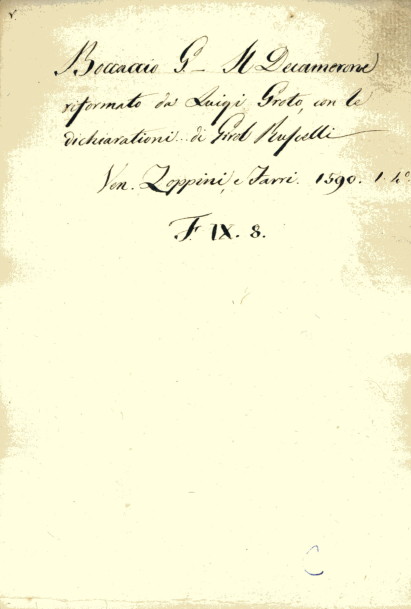 Boccaccio G. – Il Decamerone
riformato da Luigi Groto, con le
dichiarationi... di Girol Ruscelli
Ven. Zoppini, e Farri. 1590. 1. 4º
F. IX. 8.
C